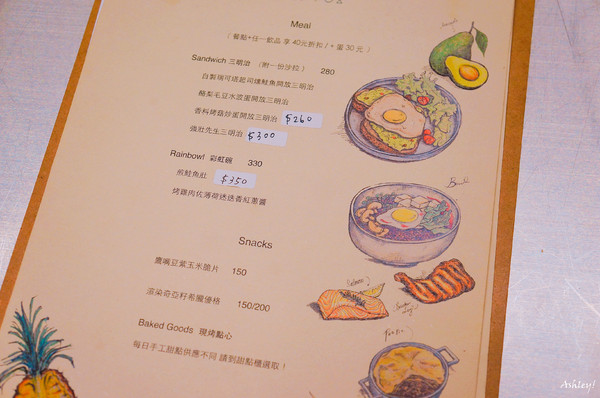 Meal
( 餐點+任一飲品 享 40元折扣 / + 蛋 30 元 )
Sandwich 三明治 (附一份沙拉) 280
自製瑞可達起司燻鮭魚開放三明治
酪梨毛豆水波蛋開放三明治
香料烤菇炒蛋開放三明治 $260
強壯先生三明治 $300
Rainbowl 彩虹碗 330
煎鮭魚肚 $350
烤雞肉佐薄荷迷迭香紅蔥醬
Snacks
鷹嘴豆紫玉米脆片 150
渲染奇亞籽希臘優格 150/200
Baked Goods 現烤點心
每日手工甜點供應不同 請到甜點櫃選取!
Salmon
Ashley!